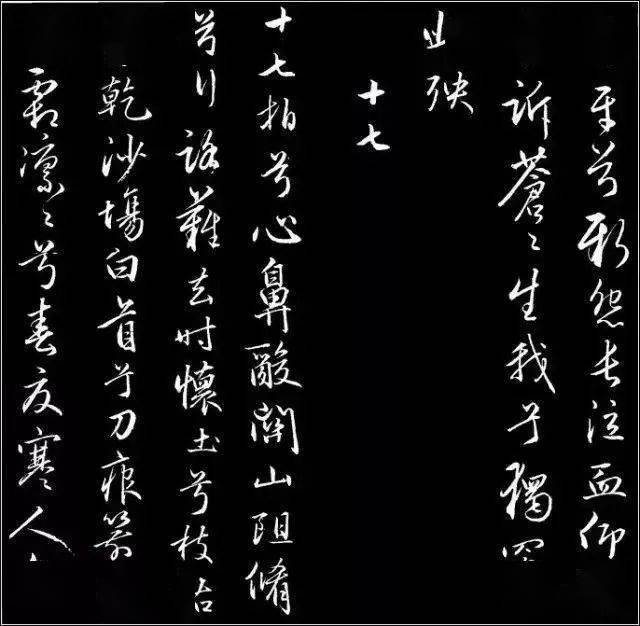 平兮新怨長泣血仰
訴蒼〻生我兮獨罹
此殃
十七
十七拍兮心鼻酸關山阻脩
兮行路難去时懷土兮枝
乾沙場白首兮刀痕箭
霜凛〻兮春夏寒人